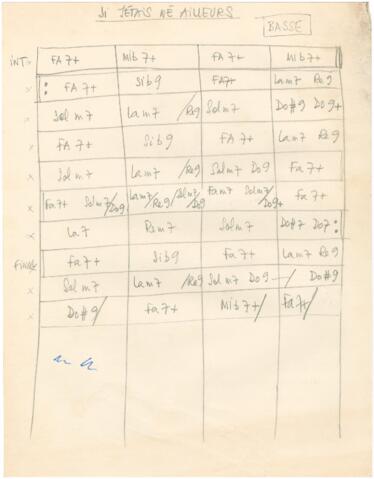 SI J'ÉTAIS NÉ AILLEURS
BASSE
INT= FA 7+ Mib 7+ FA 7+ Mib 7+
: FA 7+ Sib 9 FA7+ Lam7 Ré9
Sol m7 Lam7 /Ré9 Solm7 Do#9 Do9+
FA 7+ Sib9 FA 7+ Lam7 Ré9
Solm7 Lam7 /Ré9 Solm7 Do9 Fa7+
Fa7+ Solm7/Do9 Lam7/Ré9/Solm7/Do9 Fam7 Solm7/Do9+ Fa7+
La7 Rém7 Solm7 Do#7 Do7 :
Fa7+ Sib9 Fa7+ Lam7 Ré9
Solm7 Lam7 /Ré9 Solm7 Do9 / Do#9
Do#9/ Fa7+ Mib7+/ Fa7+/